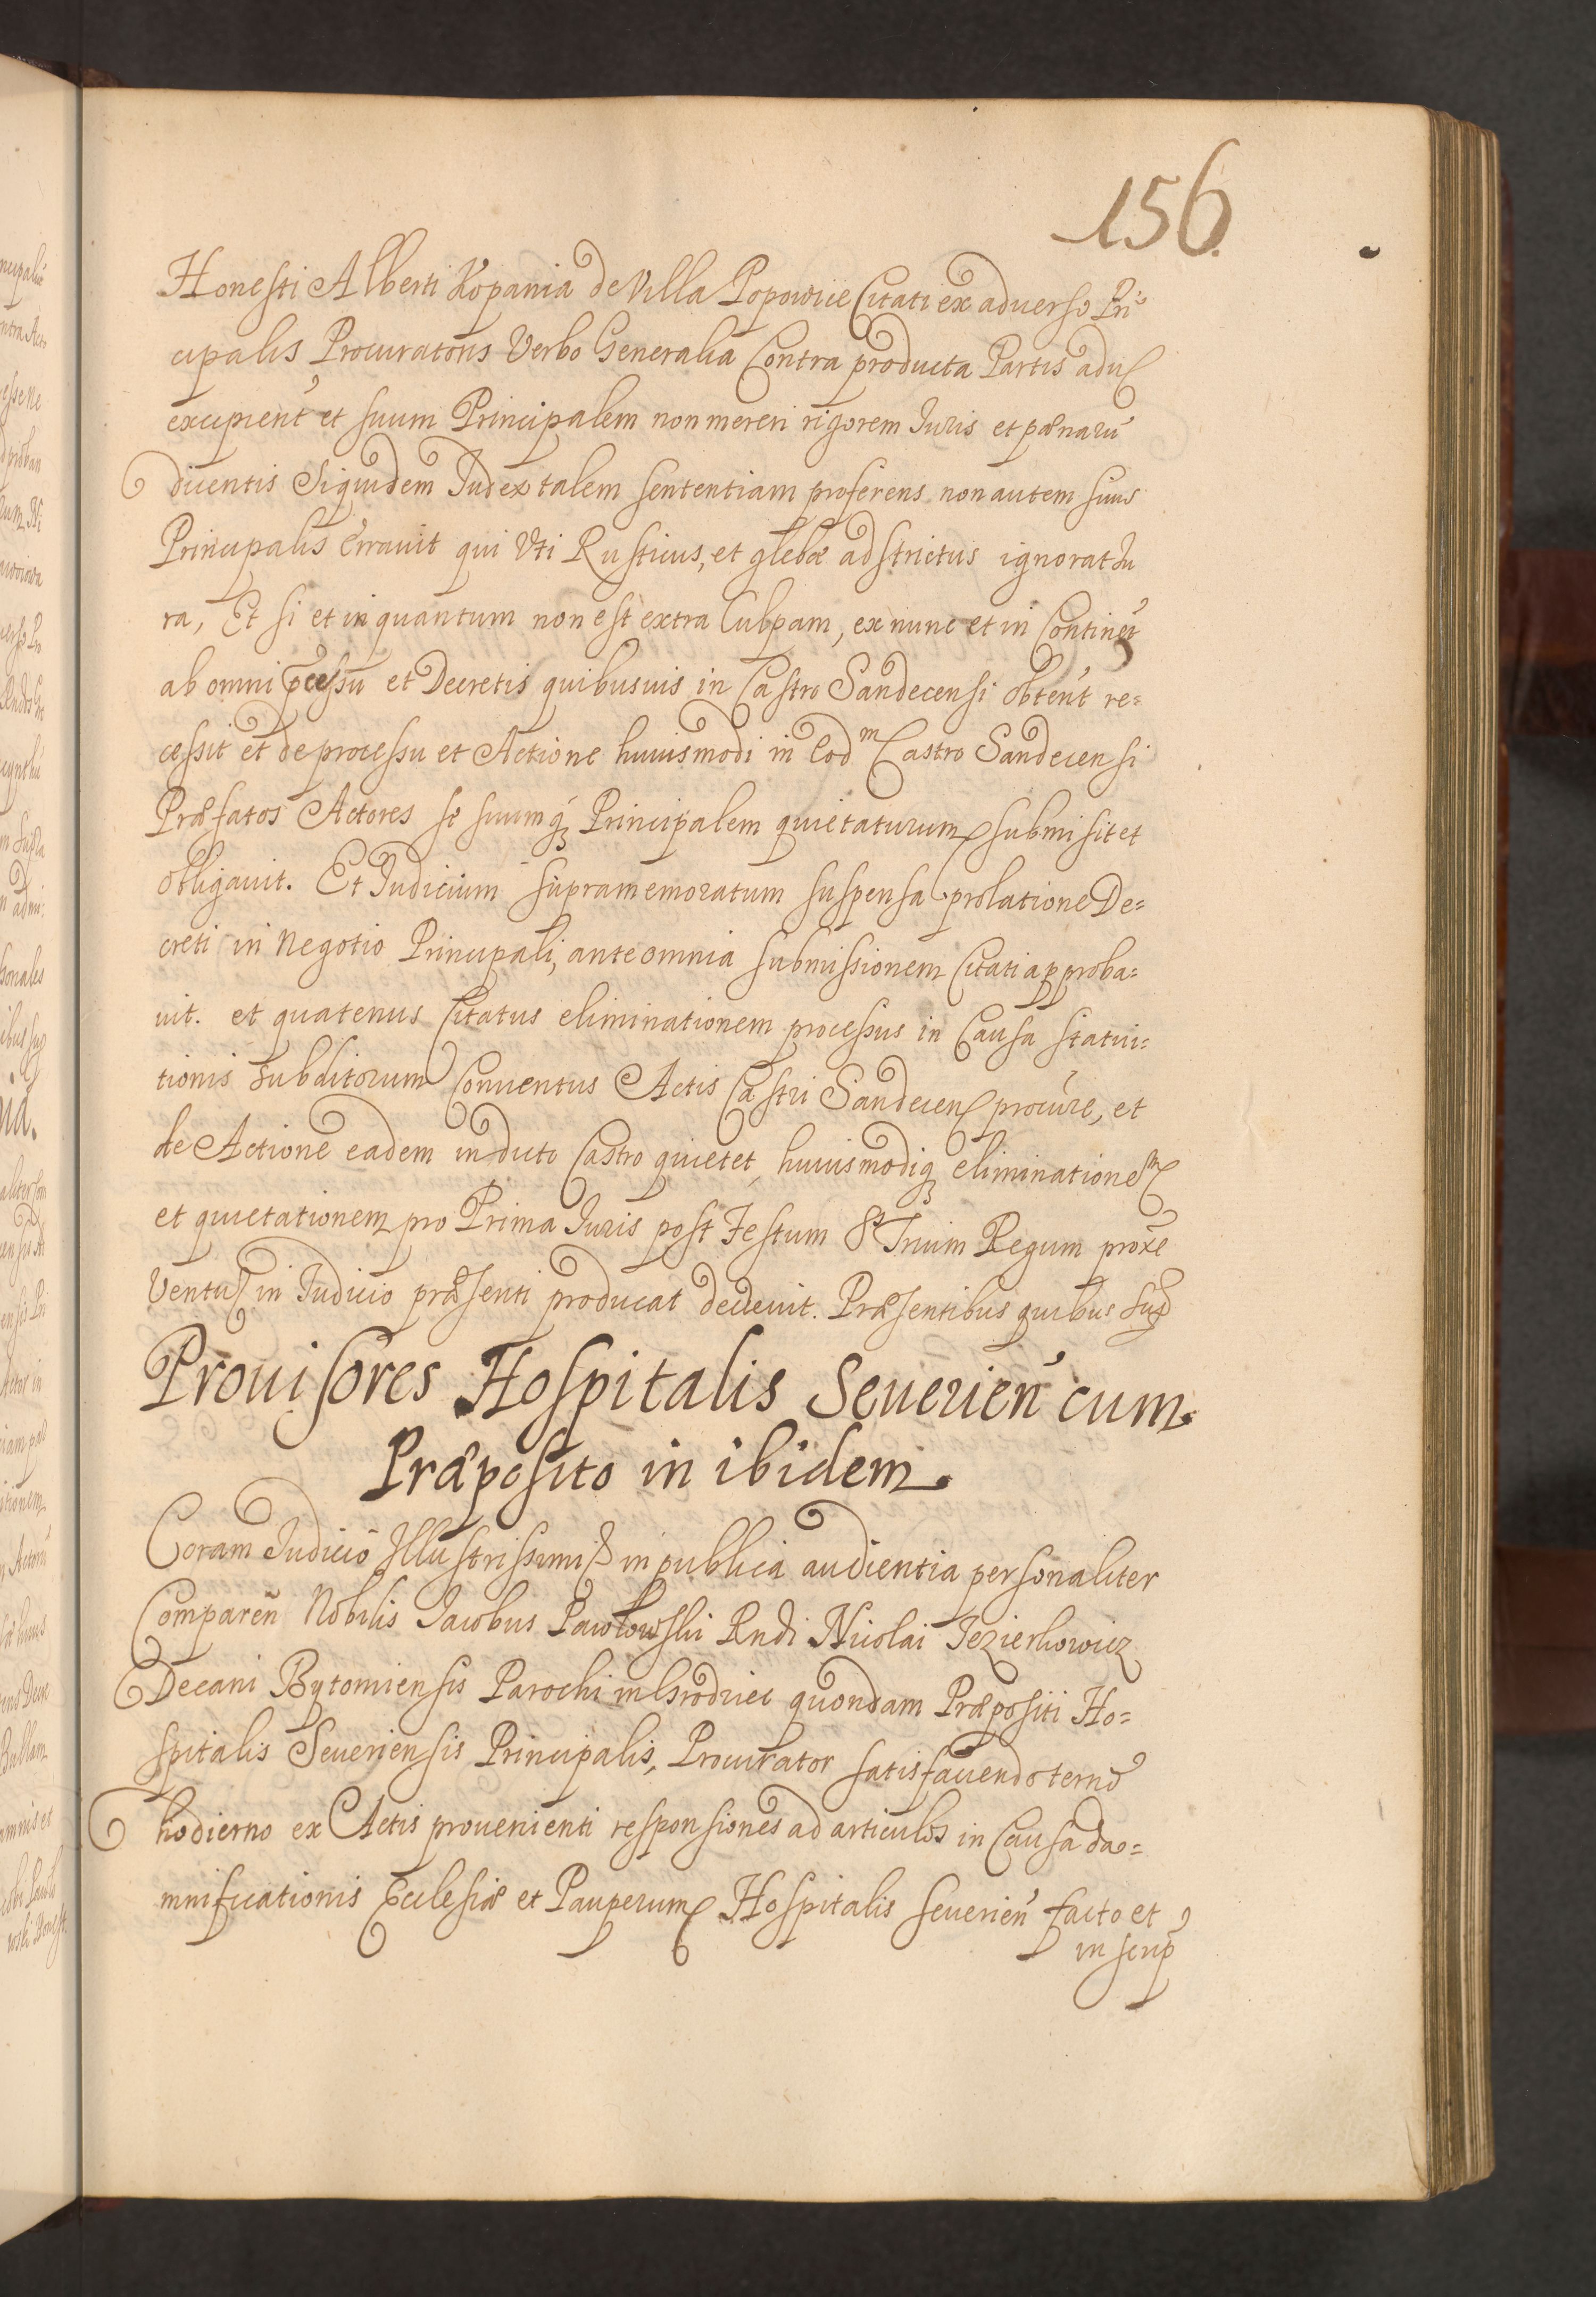 156.
Honesti Alberti Kopania de Villa Popowice Citati ex aduerso Prī
cipalis Procuratoris Verbo Generalia Contra producta Partis adu
excipient et suum Principalem non mereri rigorem Iuris et pænarū
dicentis Siquidem Iudex talem sententiam proferens non autem suus
Principalis errauit qui Vti Rusticus, et glebæ adstrictus ignorat Iu
ra, Et si et in quantum non est extra Culpam, ex nunc et in Continēt
ab omni pcessu et Decretis quibusuis in Castro Sandecensi obtent re=
cessit et de processu et Actione huiusmodi in Eodm Castro Sandecensi
Præfatos Actores se suumq Principalem quietaturum submisit et
obligauit. Et Iudicium supramemoratum suspensa prolatione De=
creti in Negotio Principali, ante omnia submissionem Citati approba=
uit. et quatenus Citatus eliminationem processus in Causa statui=
tionis subditorum Conuentus Actis Castri Sandecen procure, et
de Actione eadem in dicto Castro quietet, huiusmodiq eliminationem
et quietationem pro Prima Iuris post Festum SS Trium Regum proxe
Ventu in Iudicio præsenti producat decreuit. Præsentibus quibus sup
Prouisores Hospitalis Seuerien cum
Præposito in ibidem.
Coram Iudicio Illustrissimi in publica audientia personaliter
Comparen Nobilis Iacobus Pawlowski Rndi Nicolai Jezierkowicz
Decani Bytomiensis Parochi in Grodziec quondam Præpositi Ho=
spitalis Seueriensis Principalis, Procurator satisfaciendo termō
hodierno ex Actis prouenienti responsiones ad articulos in Causa da=
mnificationis Ecclesiæ et Pauperum Hospitalis seuerien facto et
in scrip